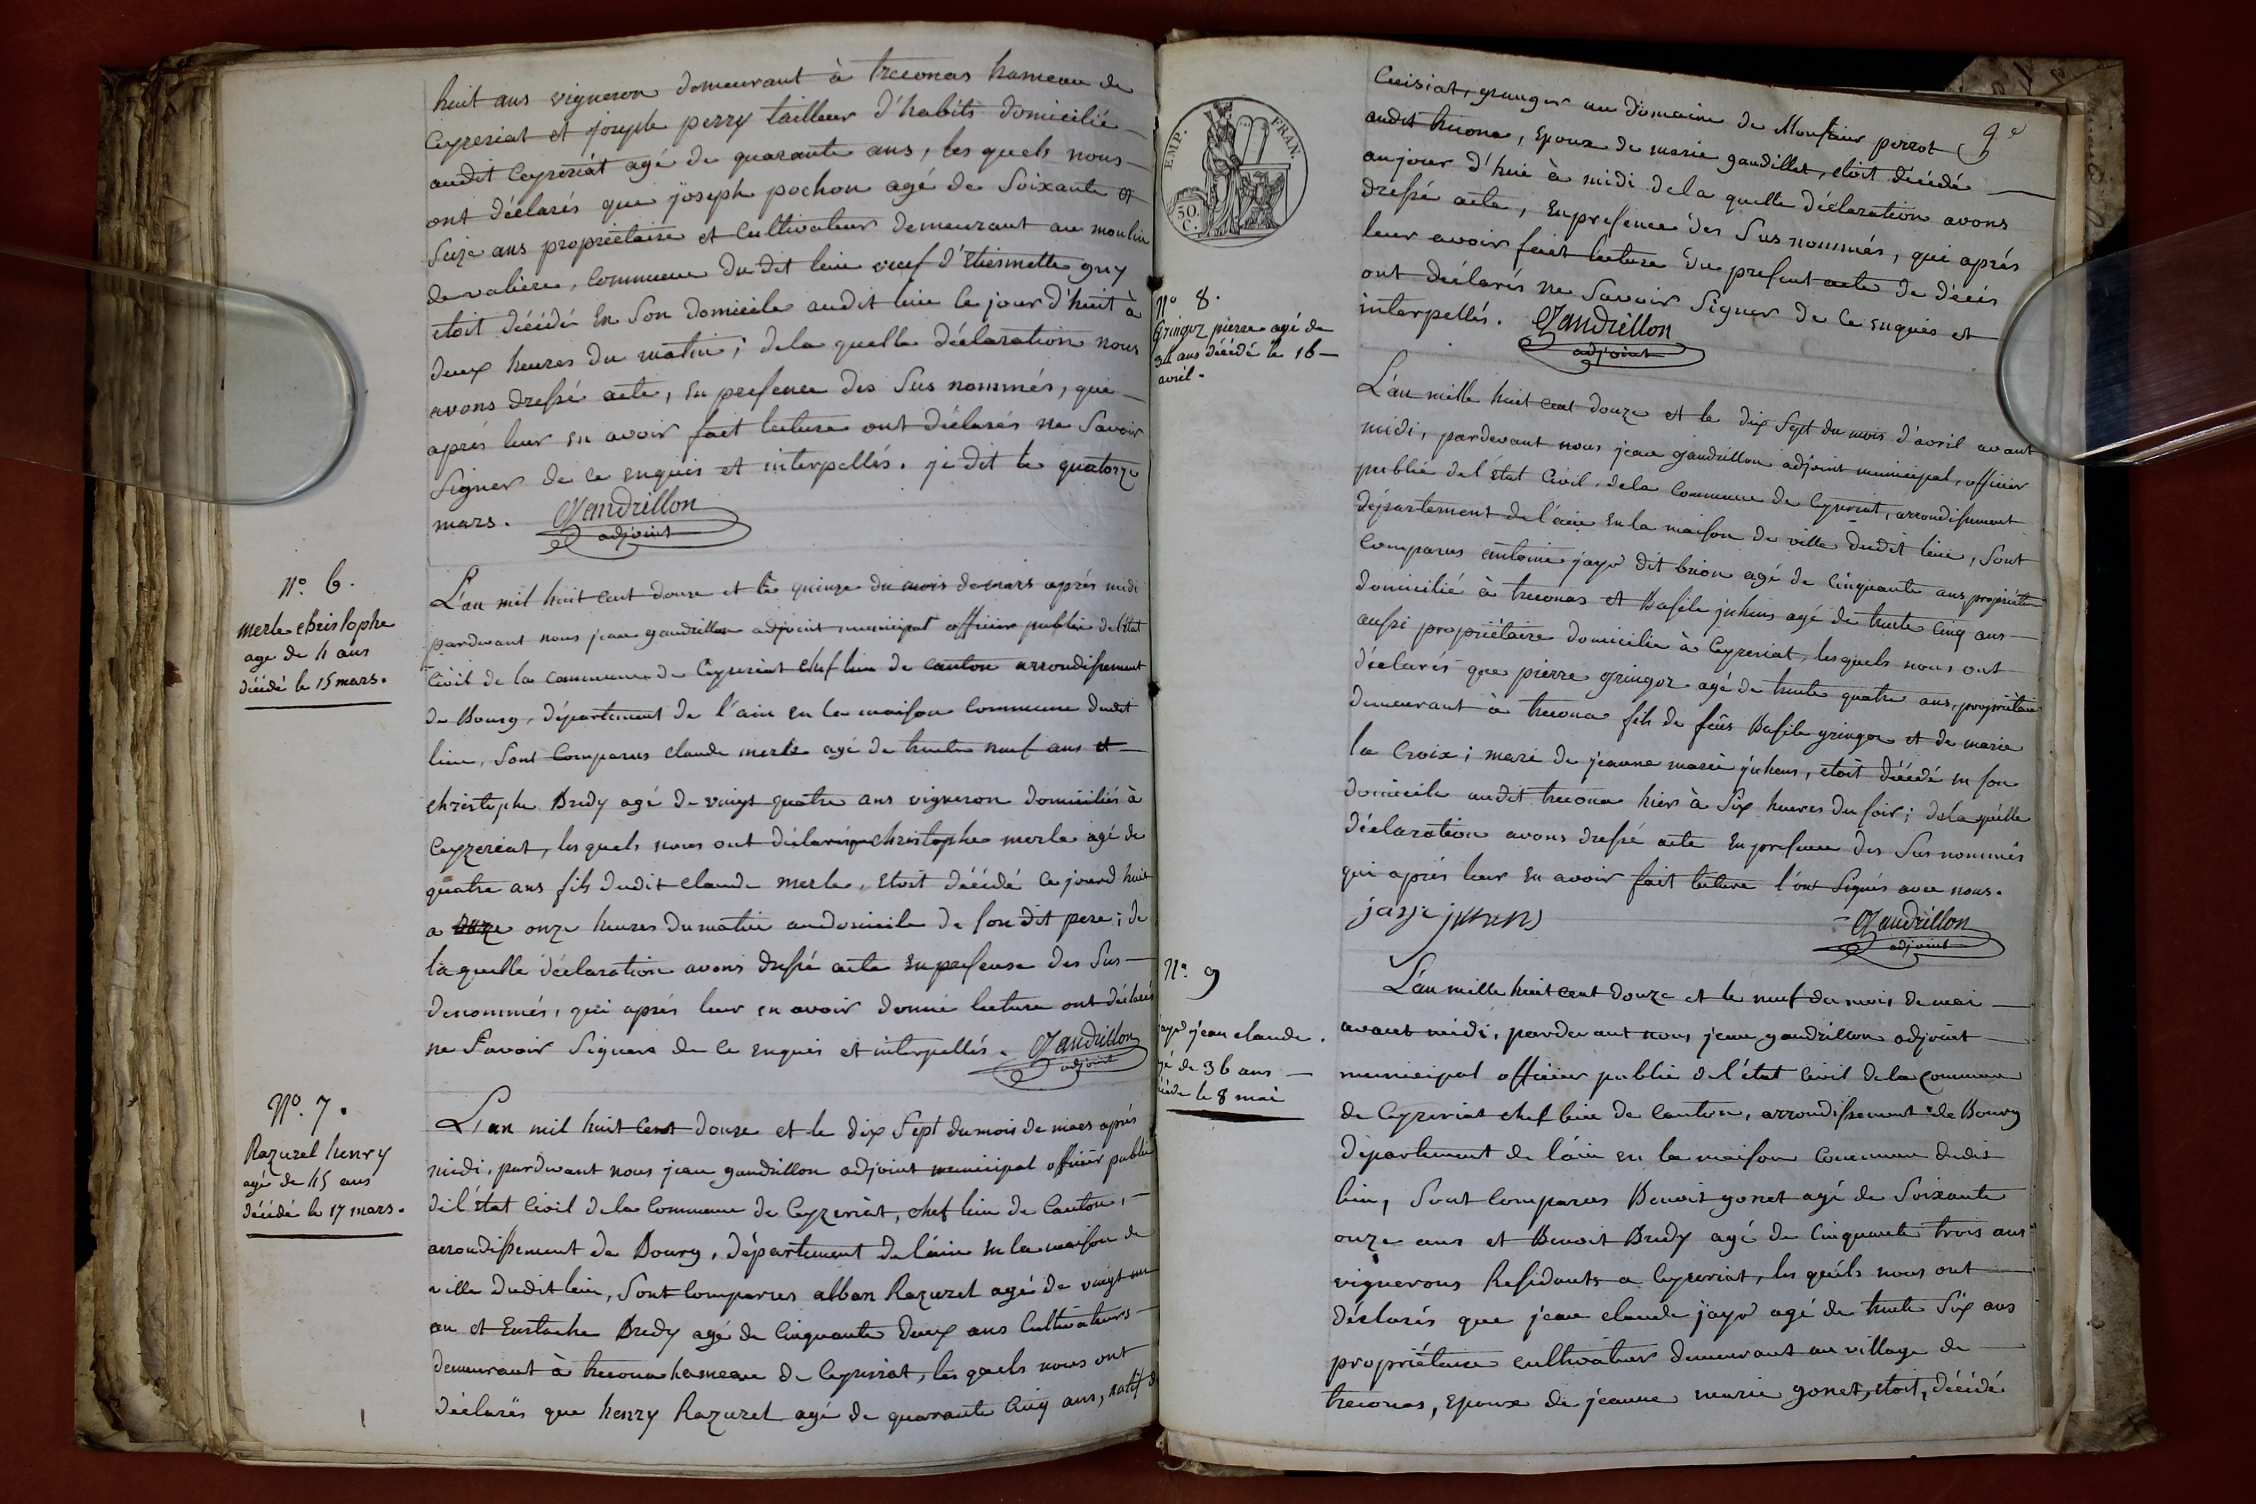 huit ans vigneron demeurant à treconas hameau de
Ceyzeriat et joseph perry tailleur d'habits domicilié
audit Ceyzeriat agé de quarante ans, les quels nous
ont déclarés que joseph pochon agé de Soixante et
Seize ans propriétaire et Cultivateur demeurant au moulin
de valiere, Commune du dit lieu veuf d'Etiennette guy
etoit décédé En Son domicile audit lieu ce jour d'huit à
deux heures du matin; de la quelle déclaration nous
avons dressé acte, en presence des Sus nommés, qui
aprés leur en avoir fait lecture ont déclarés ne Savoir
Signer de ce enquis et interpellés. je dit le quatorze
mars. Gandrillon
adjoint
N.° 6.
Merle christophe
age de 4 ans
décédé le 15 mars.
L'an mil huit cent douze et le quinze du mois de mars aprés midi
pardevant nous jean gandrillon adjoint municipal officier public de l'état
Civil de la Commune de Ceyzeriat chef lieu de canton arrondissement
de Bourg, département de l'ain en la maison Commune dudit
lieu, Sont Comparus claude merle agé de trente neuf ans et
christophe Bredy agé de vingt quatre ans vigneron domiciliés à
Ceyzeriat, les quels nous ont déclaré que christophe merle agé de
quatre ans fils dudit claude merle, etoit décédé ce jourd huit
a onze heures du matin au domicile de son dit pere; de
la quelle déclaration avons dressé acte en presense des Sus
denommés, qui aprés leur en avoir donné lecture ont déclarés
ne Savoir Signer de ce enquis et interpellés. Gandrillon
adjoint
N.° 7.
Razurel henry
agé de 45 ans
décédé le 17 mars.
L'an mil huit Cent douze et le dix Sept du mois de mars aprés
midi, pardevant nous jean gandrillon adjoint municipal officier public
de l'état Civil de la Commune de Ceyzeriat, chef lieu de Canton,
arrondissement de Bourg, département de l'ain en la maison de
ville dudit lieu, Sont Comparus alban Razurel agé de vingt un
an et Eustache Bredy agé de Cinquante deux ans Cultivateurs
demeurant à trecona hameau de Ceyzeriat, les quels nous ont
déclarés que henry Razurel agé de quarante Cinq ans, natif de
EMP. FRAN.
50.
C.
4e
Cuisiat, granger au domaine de Monsieur perrot
audit trecona, Epoux de marie gaudillet, etoit décédé
aujour d'hui à midi de la quelle déclaration avons
dressé acte, En presence des Sus nommés, qui aprés
leur avoir fait lecture du present acte de décés
ont déclarés ne Savoir Signer de Ce enquis et
interpellés. Gandrillon
adjoint
N.° 8.
Gringoz pierre agé de
34 ans décédé le 16
avril.
L'an mille huit cent douze et le dix Sept du mois d'avril avant
midi, pardevant nous jean gandrillon adjoint municipal, officier
public de l'état Civil, de la Commune de Ceyzeriat, arrondissement
département de l'ain en la maison de ville dudit lieu, Sont
Comparus antoine jayr dit brion agé de Cinquante ans propriétaire
domicilié à treconas et Basile juhens agé de trente Cinq ans
aussi propriétaire domicilié à Ceyzeriat, les quels nous ont
déclarés que pierre gringoz agé de trente quatre ans, propriétaire
demeurant à trecona fils de feûs Basile gringoz et de marie
la Croix; mari de jeanne marie juhens, etoit décédé en son
domicile audit trecona hier à Six heures du soir; de la quelle
déclaration avons dressé acte En presence des Sus nommés
qui aprés leur En avoir fait lecture l'ont Signés avec nous.
Gandrillon
adjoint
N.° 9
jayr jean claude.
agé de 36 ans
décédé le 8 mai
L'an mille huit cent douze et le neuf du mois de mai
avant midi, pardevant nous jean gandrillon adjoint
municipal officier public de l'état Civil de la Commune
de Ceyzeriat chef lieu de Canton, arrondissement de Bourg
département de l'ain en la maison Commune dudit
lieu, Sont Comparus Benoit gonet agé de Soixante
onze ans et Benoit Bredy agé de Cinquante trois ans
vignerons Residants a Ceyzeriat, les quels nous ont
déclarés que jean claude jayr agé de trente Six ans
propriétaire cultivateur demeurant au village de
treconas, Epoux de jeanne marie gonet, etoit, décédé